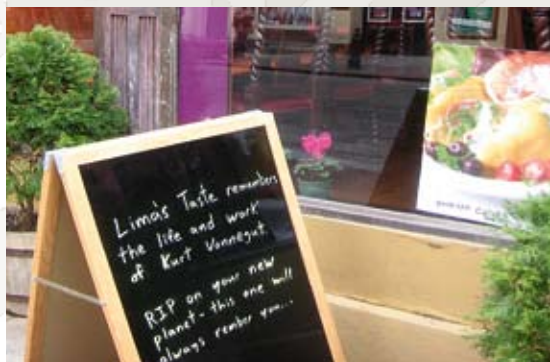 Lima's Taste remembers
the life and work
of Kurt Vonnegut.
RIP on your new
planet - this one will
always rember you...